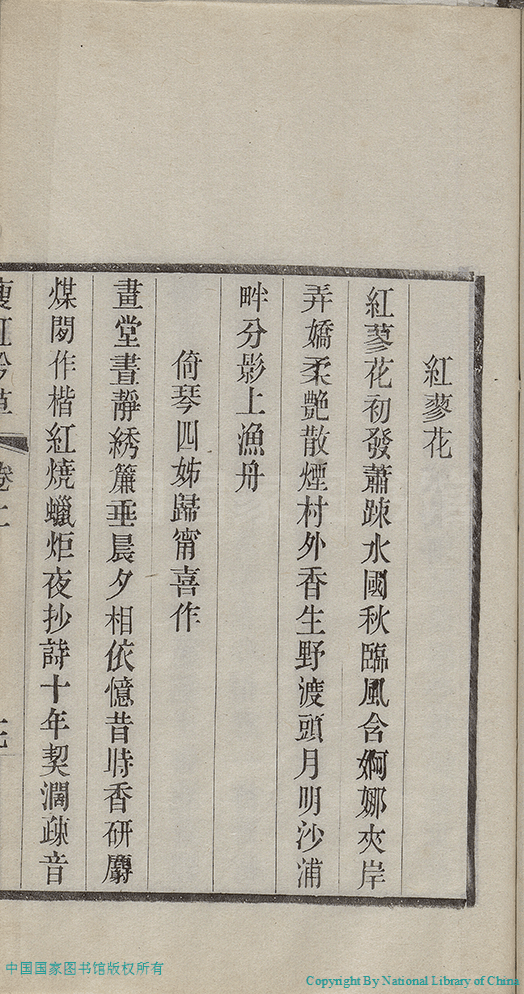 紅蓼花
紅蓼花初發蕭踈水國秋臨風含婀娜夾岸
弄嬌柔艷散煙村外香生野渡頭月明沙浦
畔分影上漁舟
倚琴四姊歸甯喜作
畫堂晝靜綉簾垂晨夕相依憶昔時香研麝
煤閔作楷紅燒蠟炬夜抄詩十年契濶疎音
瘦紅吟草
卷上
中国国家图书馆版权所有
Copyright By National Library of China